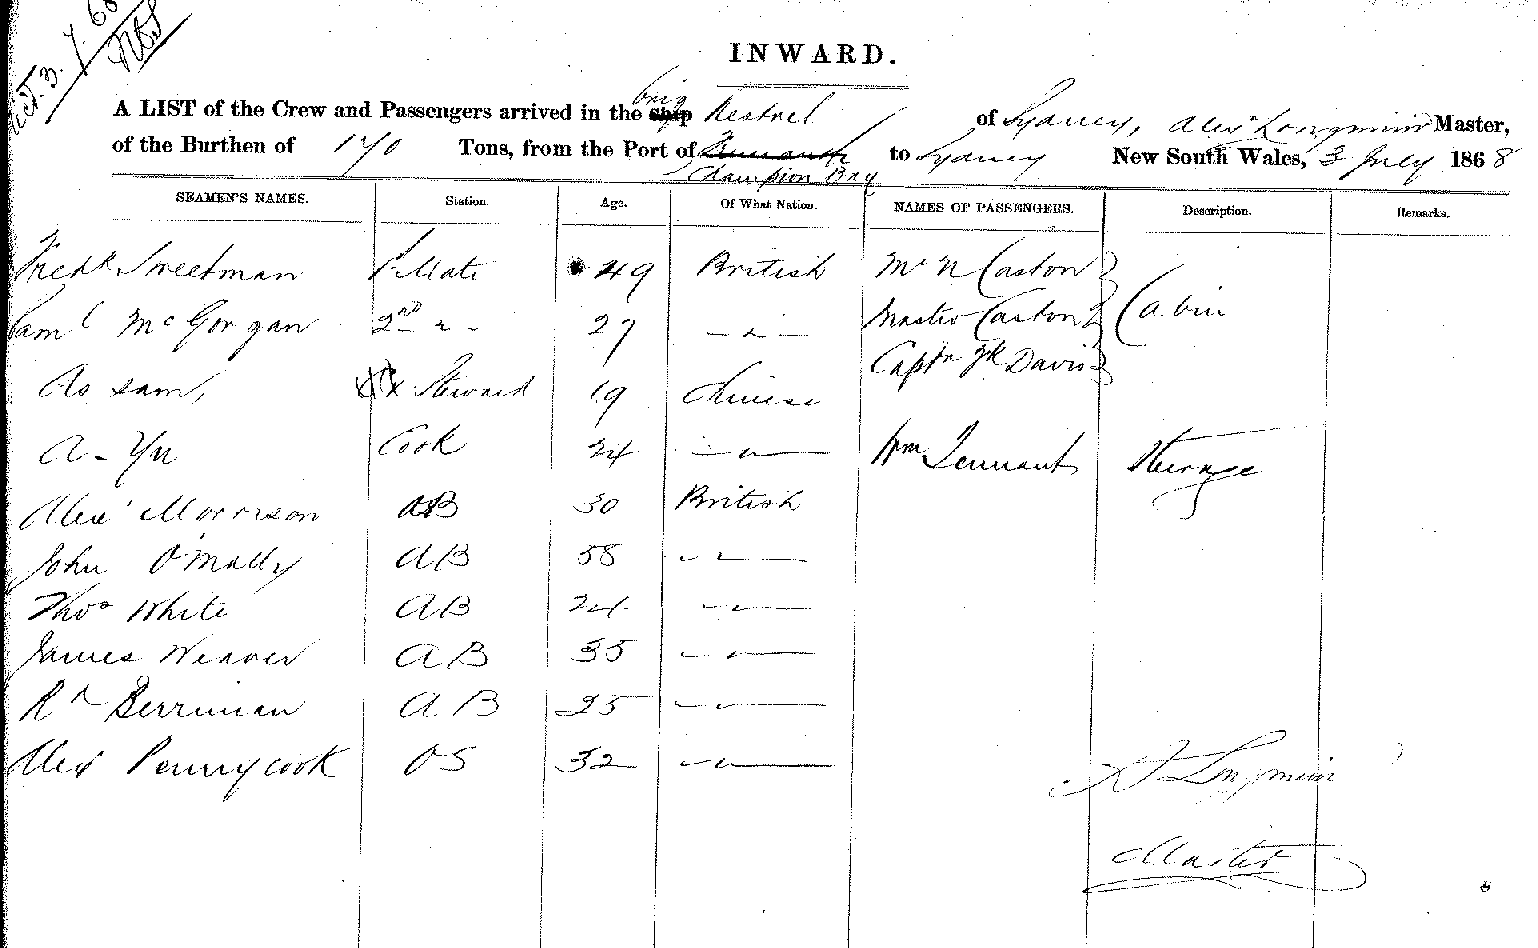 3. 7. 68
INWARD.
A LIST of the Crew and Passengers arrived in the Ship brig Kestrel of Sydney, Alexr Longmuir Master,
of the Burthen of 170 Tons, from the Port of Fremantle to Sydney New South Wales, 3 July 1868
Champion Bay
SEAMEN'S NAMES. Station. Age. Of What Nation. NAMES OF PASSENGERS. Description. Remarks.
Fredk Sweetman 1 Mate 49 British Mr N Caston
Saml McGorgan 2nd " - 27 - " - Master Caston Cabin
Captn Davis
Ah sam, Steward 19 Chinese
A - Yu Cook 24 - " - Wm Tennant Steerage
Alexr Morrison AB 30 British
John O'Mally AB 58 - " -
Thos White AB 24 - " -
James Weaver AB 35 - " -
Rd Berriman AB 25 - " -
Alex Pennycook OS 32 - " -
A Longmuir
Master